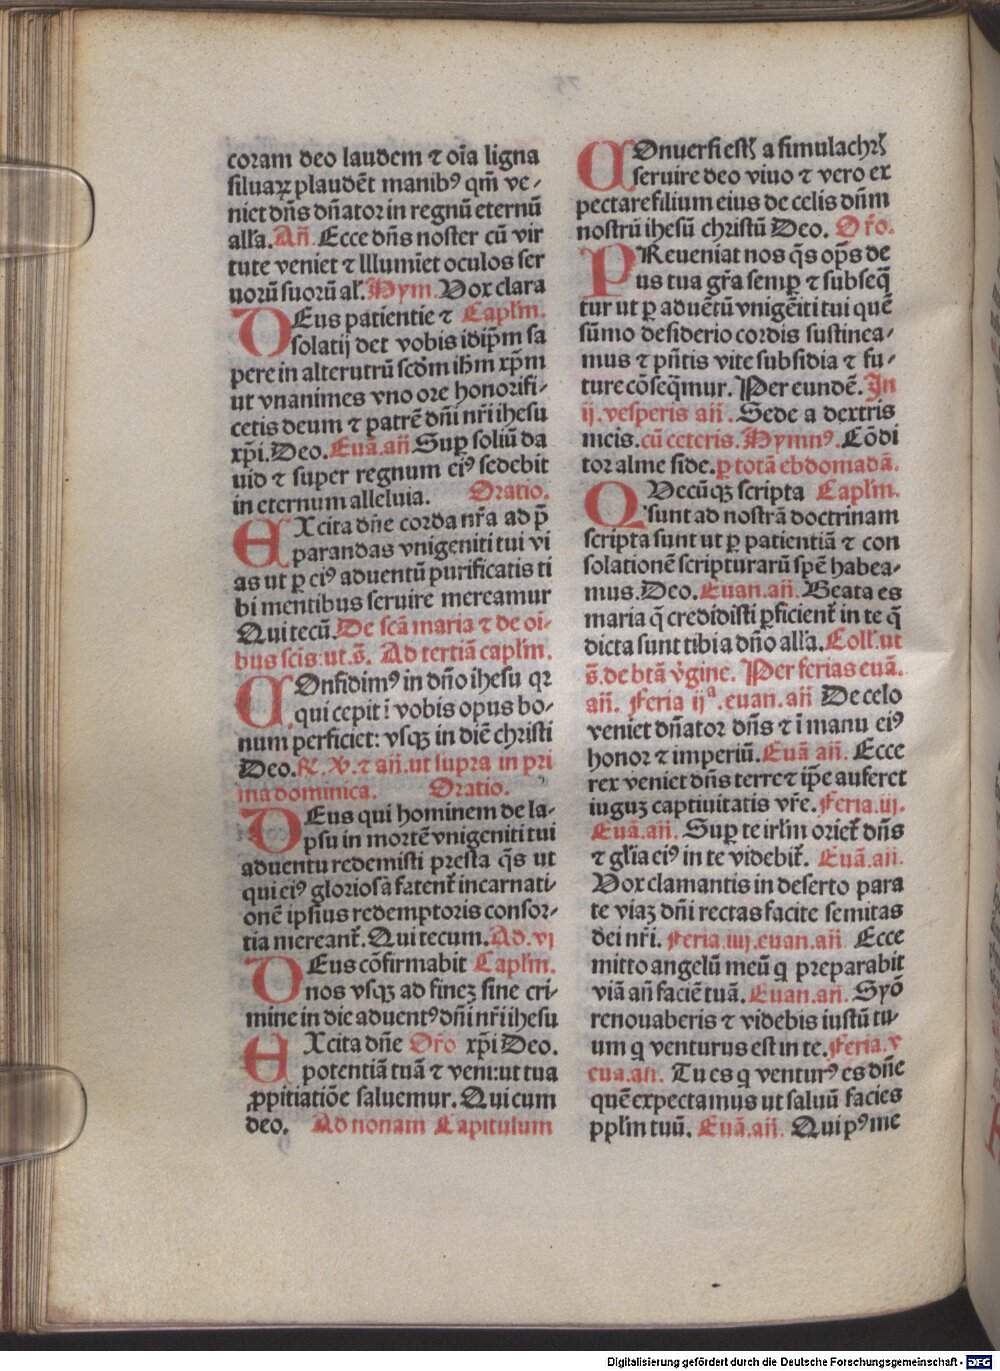 coram deo laudem ⁊ oīa ligna
siluaꝝ plaudēt manibꝰ qm̄ ve⸗
niet dn̄s dn̄ator in regnū eternū
all'a. Añ. Ecce dn̄s noster cū vir
tute veniet ⁊ Illumīet oculos ser
uorū suorū al'. Hym. Vox clara
DEus patientie ⁊ Capl'm.
solatij det vobis idip̄m sa
pere in alterutrū scd̄m ihm̄ xp̄m
ut vnanimes vno ore honorifi⸗
cetis deum ⁊ patrē dn̄i nr̄i ihesu
xp̄i. Deo. Euā.añ Suꝑ soliū da
uid ⁊ super regnum eiꝰ sedebit
in eternum alleluia. Oratio.
EXcita dn̄e corda nr̄a ad p̄
parandas vnigeniti tui vi
as ut ꝑ eiꝰ aduentū purificatis ti
bi mentibus seruire mereamur
Qui tecū. De scā maria ⁊ de oi⸗
bus scīs: ut. s̄. Ad tertiā capl'm.
COnfidimꝰ in dn̄o ihesu qꝛ
qui cepit ī vobis opus bo⸗
num perficiet: vsqꝫ in diē christi
Deo. R̄. V̄. ⁊ añ. ut supra in pri
ma dominica. Oratio.
DEus qui hominem de la⸗
psu in mortē vnigeniti tui
aduentu redemisti presta q̄s ut
qui eiꝰ gloriosā fatent᷑ incarnati⸗
onē ipsius redemptoris consor⸗
tia mereant᷑. Qui tecum. Ad. vj
DEus cōfirmabit Capl'm.
nos vsqꝫ ad fineꝫ sine cri⸗
mine in die aduentꝰ dn̄i nr̄i ihesu
EXcita dn̄e Or̄o xp̄i Deo.
potentiā tuā ⁊ veni: ut tua
ꝓpitiatiōe saluemur. Qui cum
deo. Ad nonam Capitulum
COnuersi estꝭ a simulachrꝭ
seruire deo viuo ⁊ vero ex
pectare filium eius de celis dn̄m
nostrū ihesū christū Deo. Or̄o.
PReueniat nos q̄s op̄s de
us tua gr̄a semꝑ ⁊ subseq̄
tur ut ꝑ aduētū vnigēiti tui quē
sūmo desiderio cordis sustinea⸗
mus ⁊ pn̄tis vite subsidia ⁊ fu⸗
ture cōseq̄mur. Per eundē. In
ij. vesperis añ. Sede a dextris
meis. cū ceteris. Hymnꝰ. Cōdi
tor alme side. ꝑ totā ebdomadā.
QVecūqꝫ scripta Capl'm.
sunt ad nostrā doctrinam
scripta sunt ut ꝑ patientiā ⁊ con
solationē scripturarū spē habea⸗
mus. Deo. Euan. añ. Beata es
maria q̄ credidisti ꝑficient᷑ in te q̄
dicta sunt tibi a dn̄o all'a. Coll'. ut
s̄. de btā v̄gine. Per ferias euā.
añ. Feria ijª. euan. añ De celo
veniet dn̄ator dn̄s ⁊ ī manu eiꝰ
honor ⁊ imperiū. Euā añ. Ecce
rex veniet dn̄s terre ⁊ ip̄e auferet
iuguꝫ captiuitatis vr̄e. Feria. iij.
Euā. añ. Suꝑ te irl'm oriet᷑ dn̄s
⁊ gl'ia eiꝰ in te videbit᷑. Euā. añ.
Vox clamantis in deserto para
te viaꝫ dn̄i rectas facite semitas
dei nr̄i. Feria. iiij. euan. añ. Ecce
mitto angelū meū q preparabit
viā añ faciē tuā. Euan. añ. Syō
renouaberis ⁊ videbis iustū tu⸗
um q venturus est in te. Feria. v
eua. añ. Tu es q venturꝰ es dn̄e
quē expectamus ut saluū facies
ppl'm tuū. Euā. añ. Qui pꝰ me
Digitalisierung gefördert durch die Deutsche Forschungsgemeinschaft - DFG